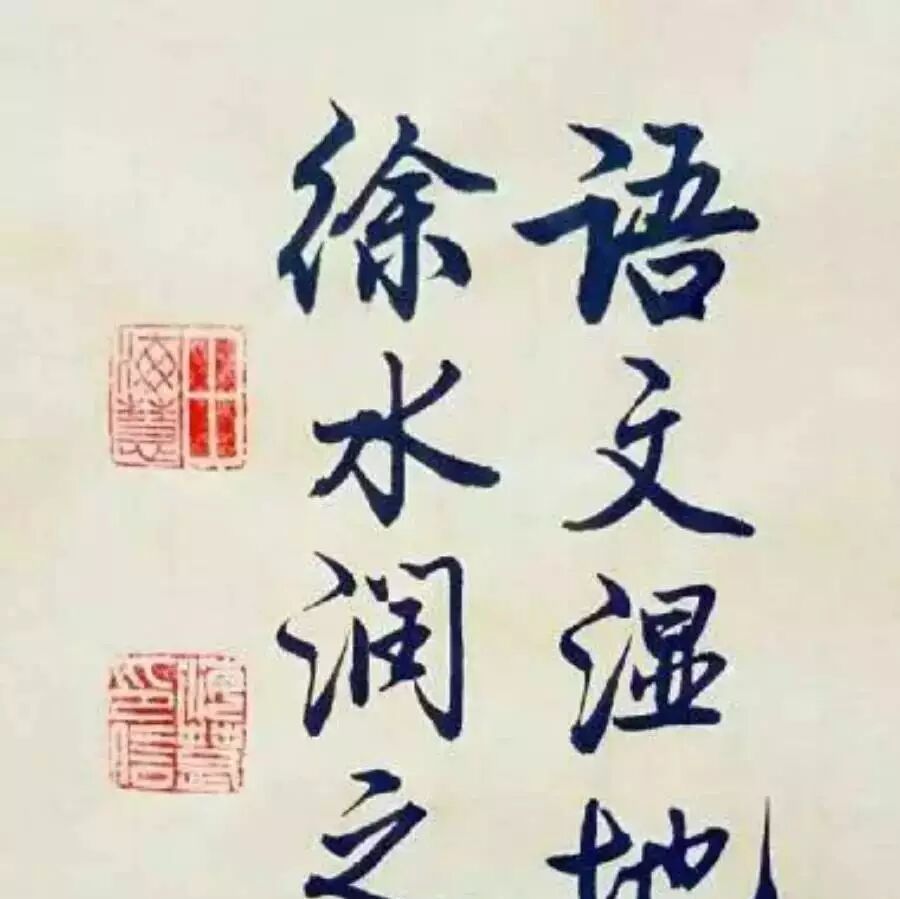 语文湿地
徐水润之